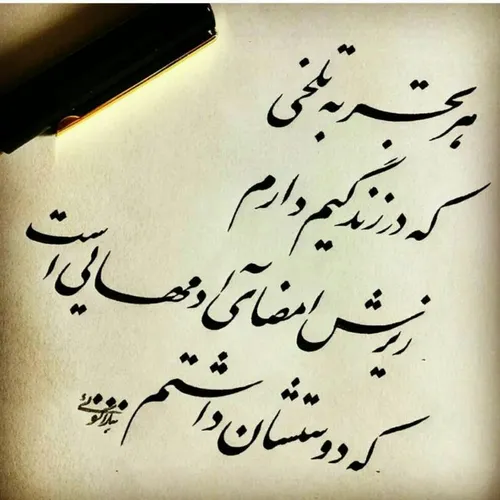 هر تجربه تلخی
که در زندگیم دارم
زیرش امضای آدمهایی است
که دوستشان داشتم